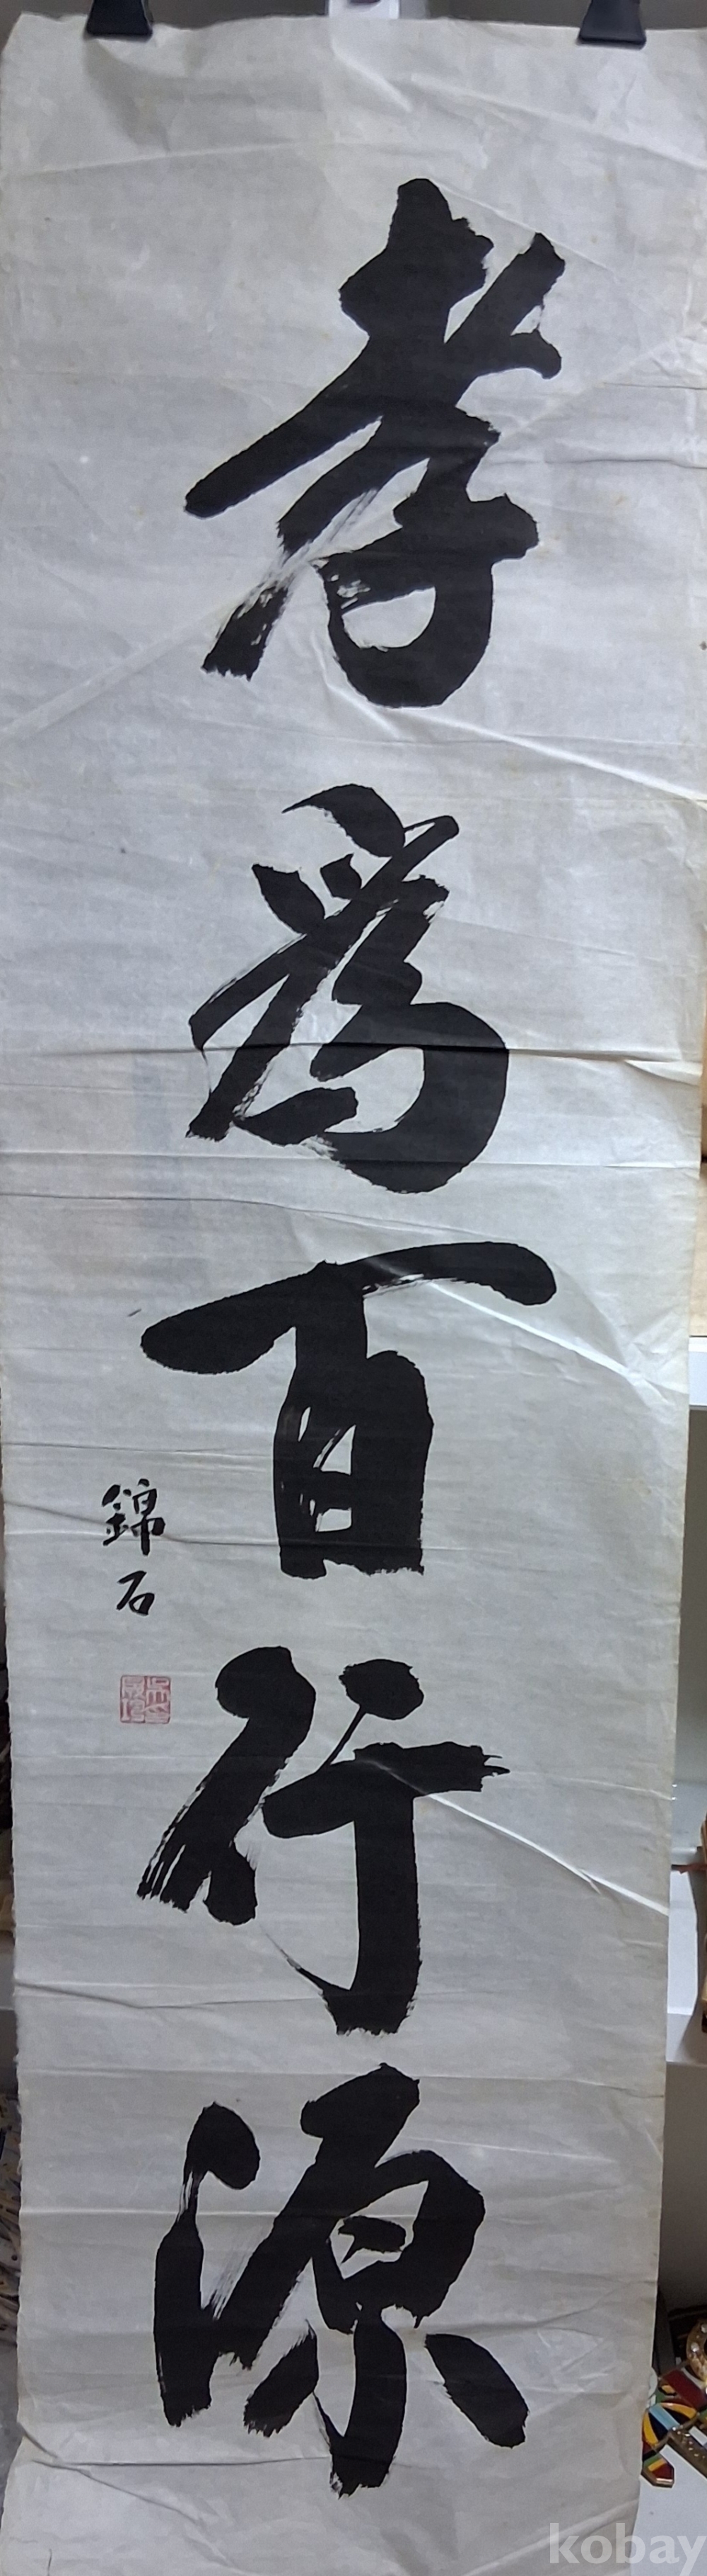 孝爲百行源
錦石
kobay